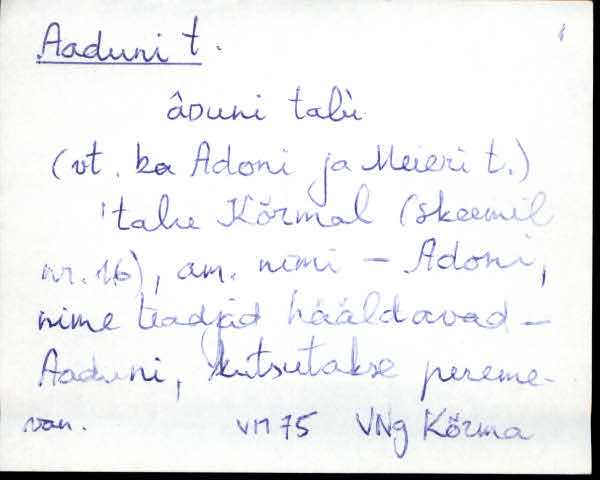 Aaduni t.
âᴅuni talù
(vt. ka Adoni ja Meieri t.)
'talu Kõrmal (skeemil
nr. 16), am. nimi – Adoni,
nime teadjad hääldavad –
Aaduni, kutsutakse pereme-
van. VM 75 VNg Kõrma